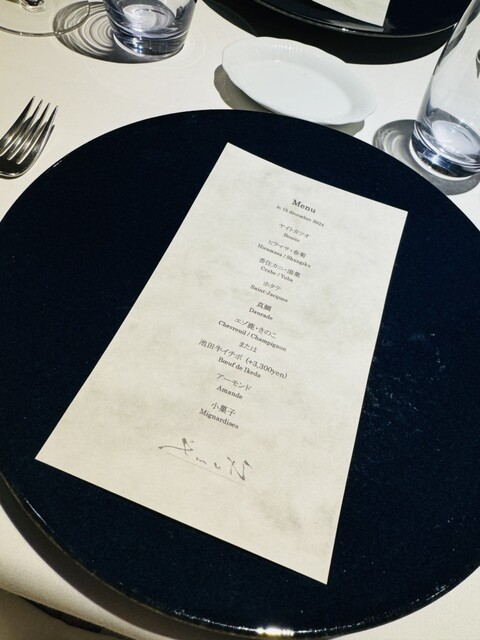 Menu
le 15 décembre 2024
ケイトカツオ
Bonite
ヒラマサ・春菊
Hiramasa / Shungiku
香住カニ・湯葉
Crabe / Yuba
ホタテ
Saint-Jacques
真鯛
Daurade
エゾ鹿・きのこ
Chevreuil / Champignon
または
池田牛イチボ (+3,300yen)
Bœuf de Ikeda
アーモンド
Amande
小菓子
Mignardises